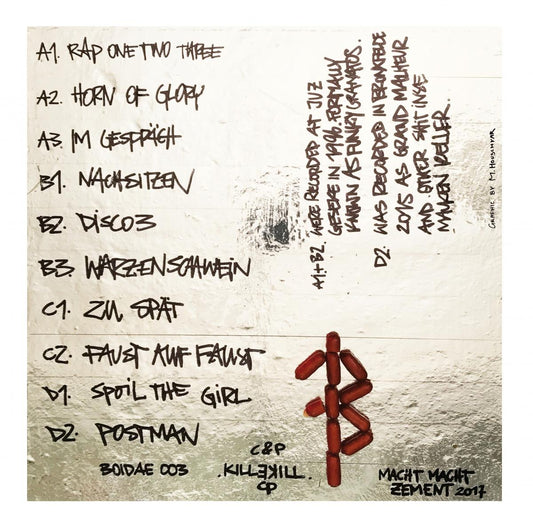 A1. RAP ONE TWO THREE
A2. HORN OF GLORY
A3. IM GESPRÄCH
B1. NACHSITZEN
B2. DISCO 3
B3. WARZENSCHWEIN
C1. ZU SPÄT
C2. FAUST AUF FAUST
D1. SPOIL THE GIRL
D2. POSTMAN
BOIDAE 003
C&P
KILLEKILL
MACHT MACHT
ZEMENT 2017
A1.+B2. WERE RECORDED AT JUZ
GESEKE IN 1996. FORMALLY
KNOWN AS FUNKY GRANATOS.
D2. WAS RECORDED IN
2015 AS GRAND MALHEUR
AND OTHER SHIT INSE
MAIKEN KELLER.
GRAPHIC BY M.